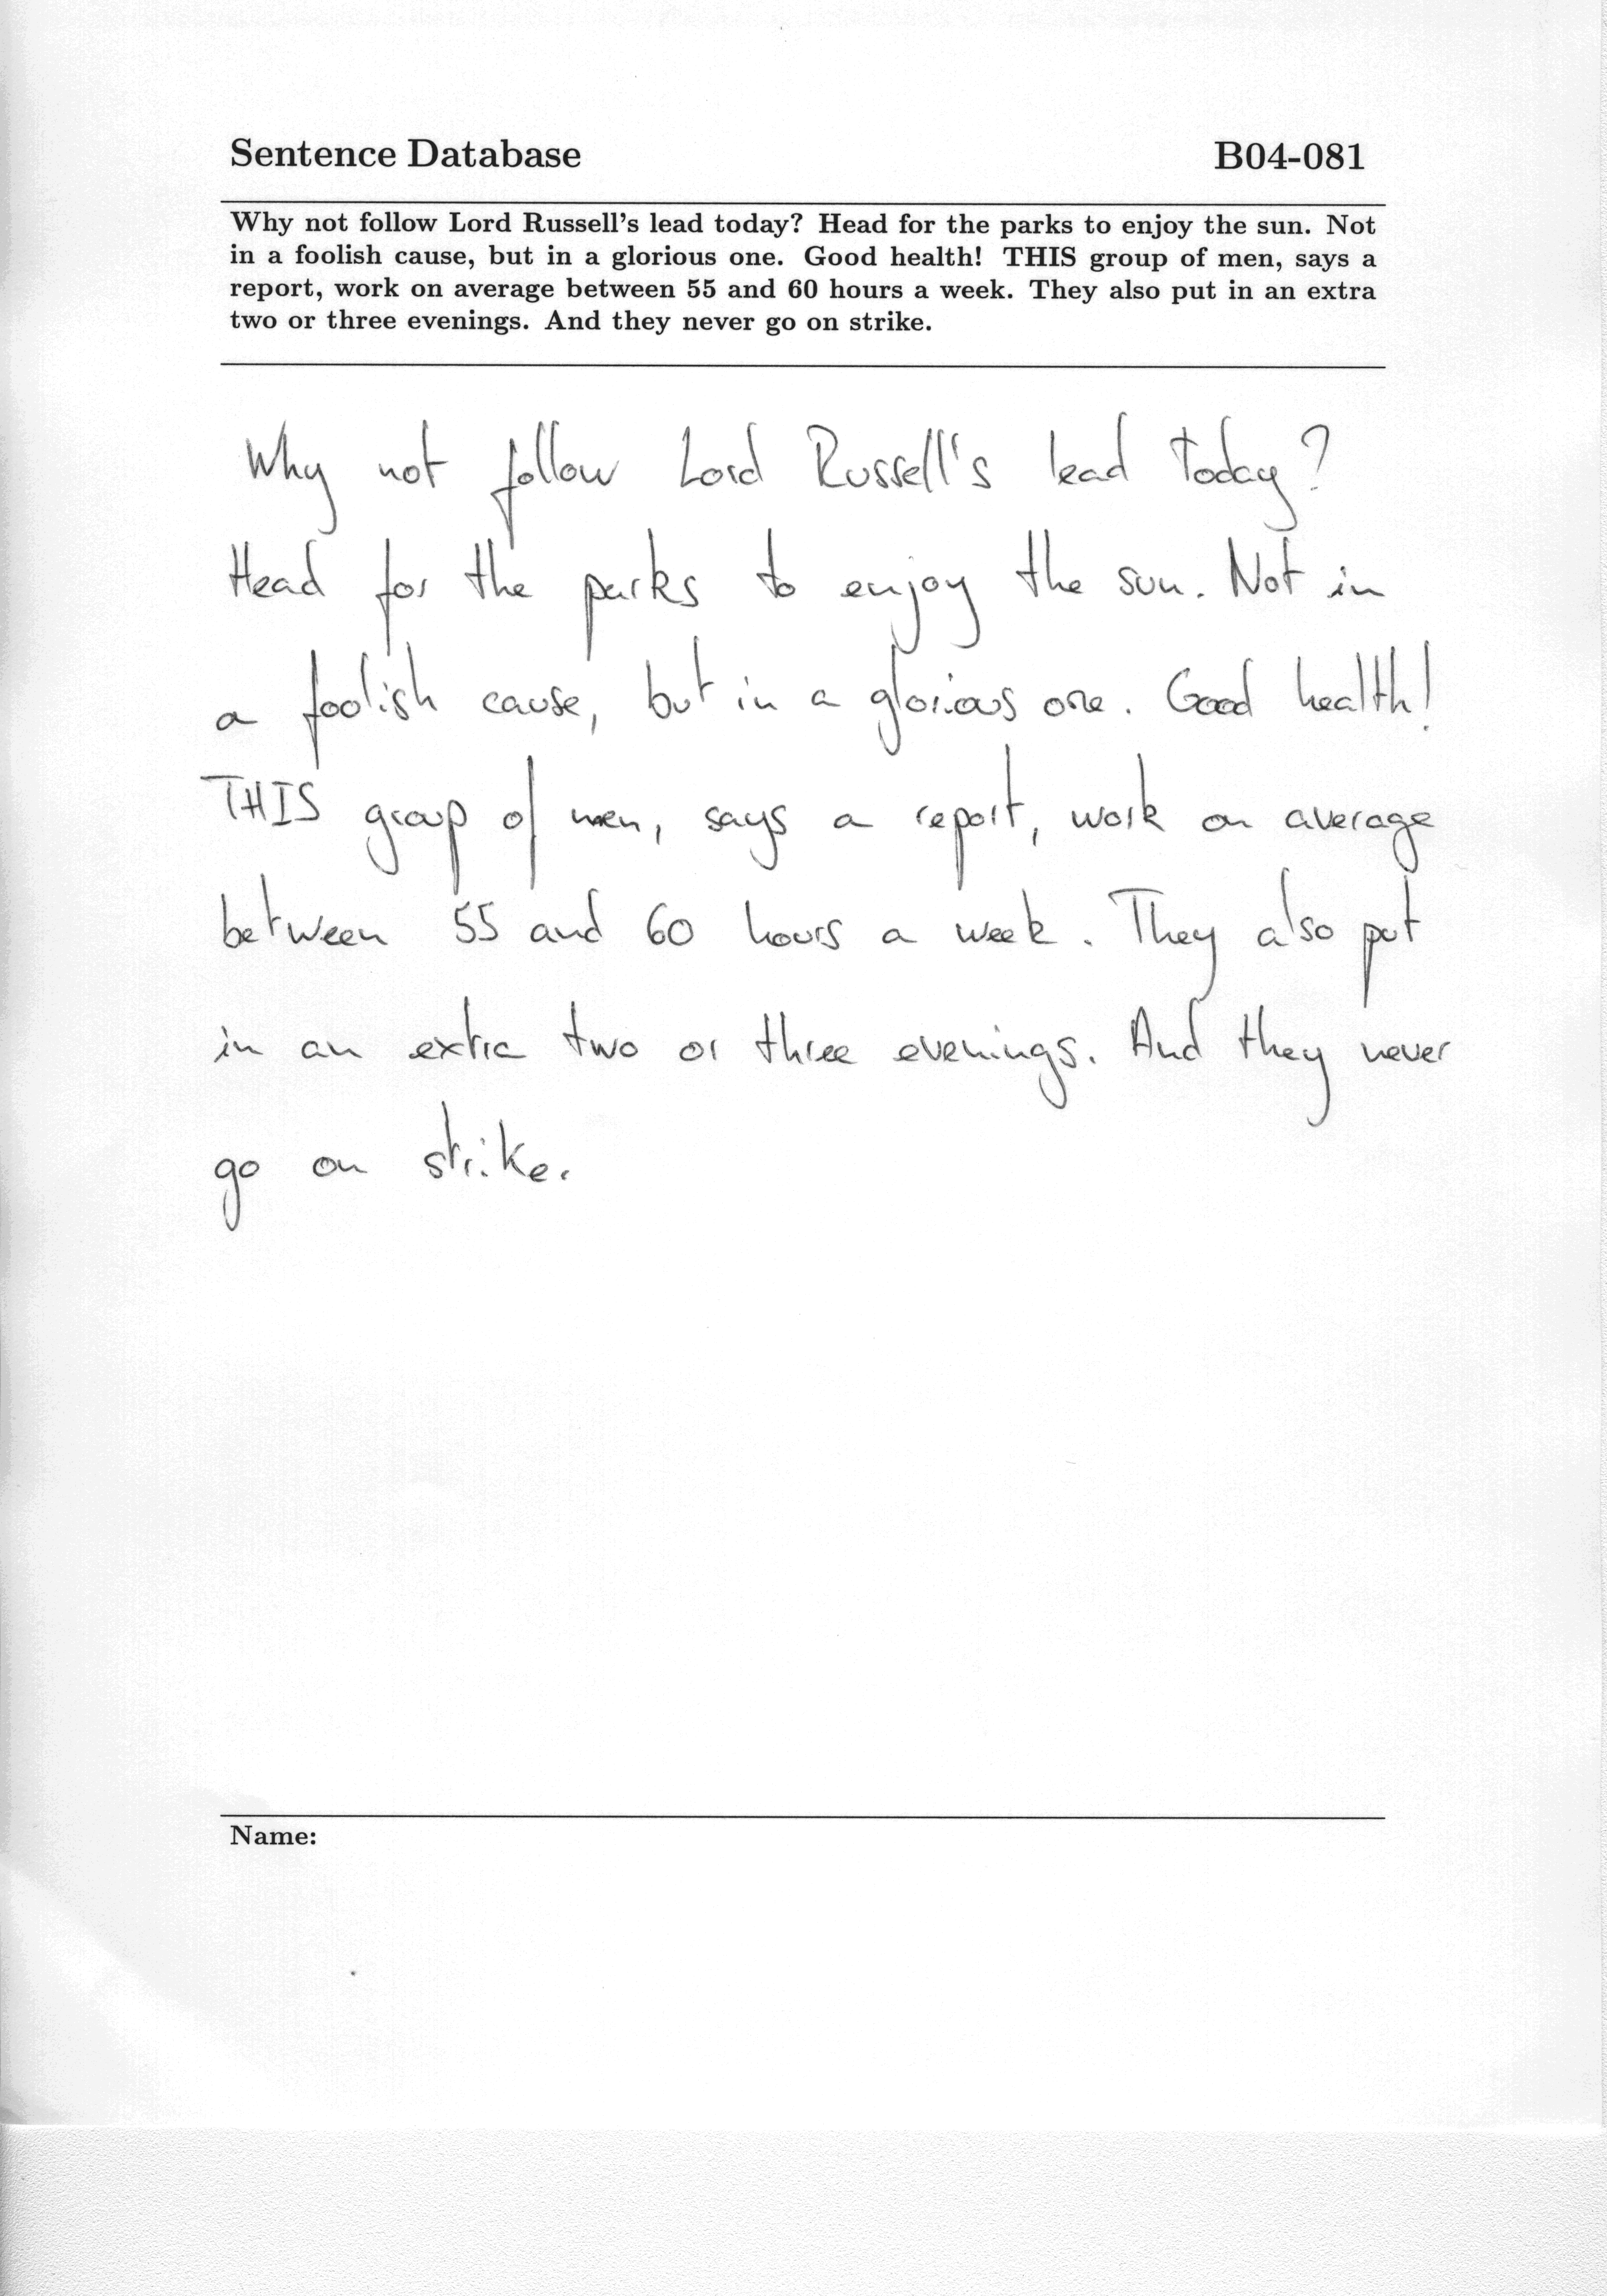 Sentence Database B04-081
Why not follow Lord Russell's lead today? Head for the parks to enjoy the sun. Not
in a foolish cause, but in a glorious one. Good health! THIS group of men, says a
report, work on average between 55 and 60 hours a week. They also put in an extra
two or three evenings. And they never go on strike.
Why not follow Lord Russell's lead today?
Head for the parks to enjoy the sun. Not in
a foolish cause, but in a glorious one. Good health!
THIS group of men, says a report, work on average
between 55 and 60 hours a week. They also put
in an extra two or three evenings. And they never
go on strike.
Name: